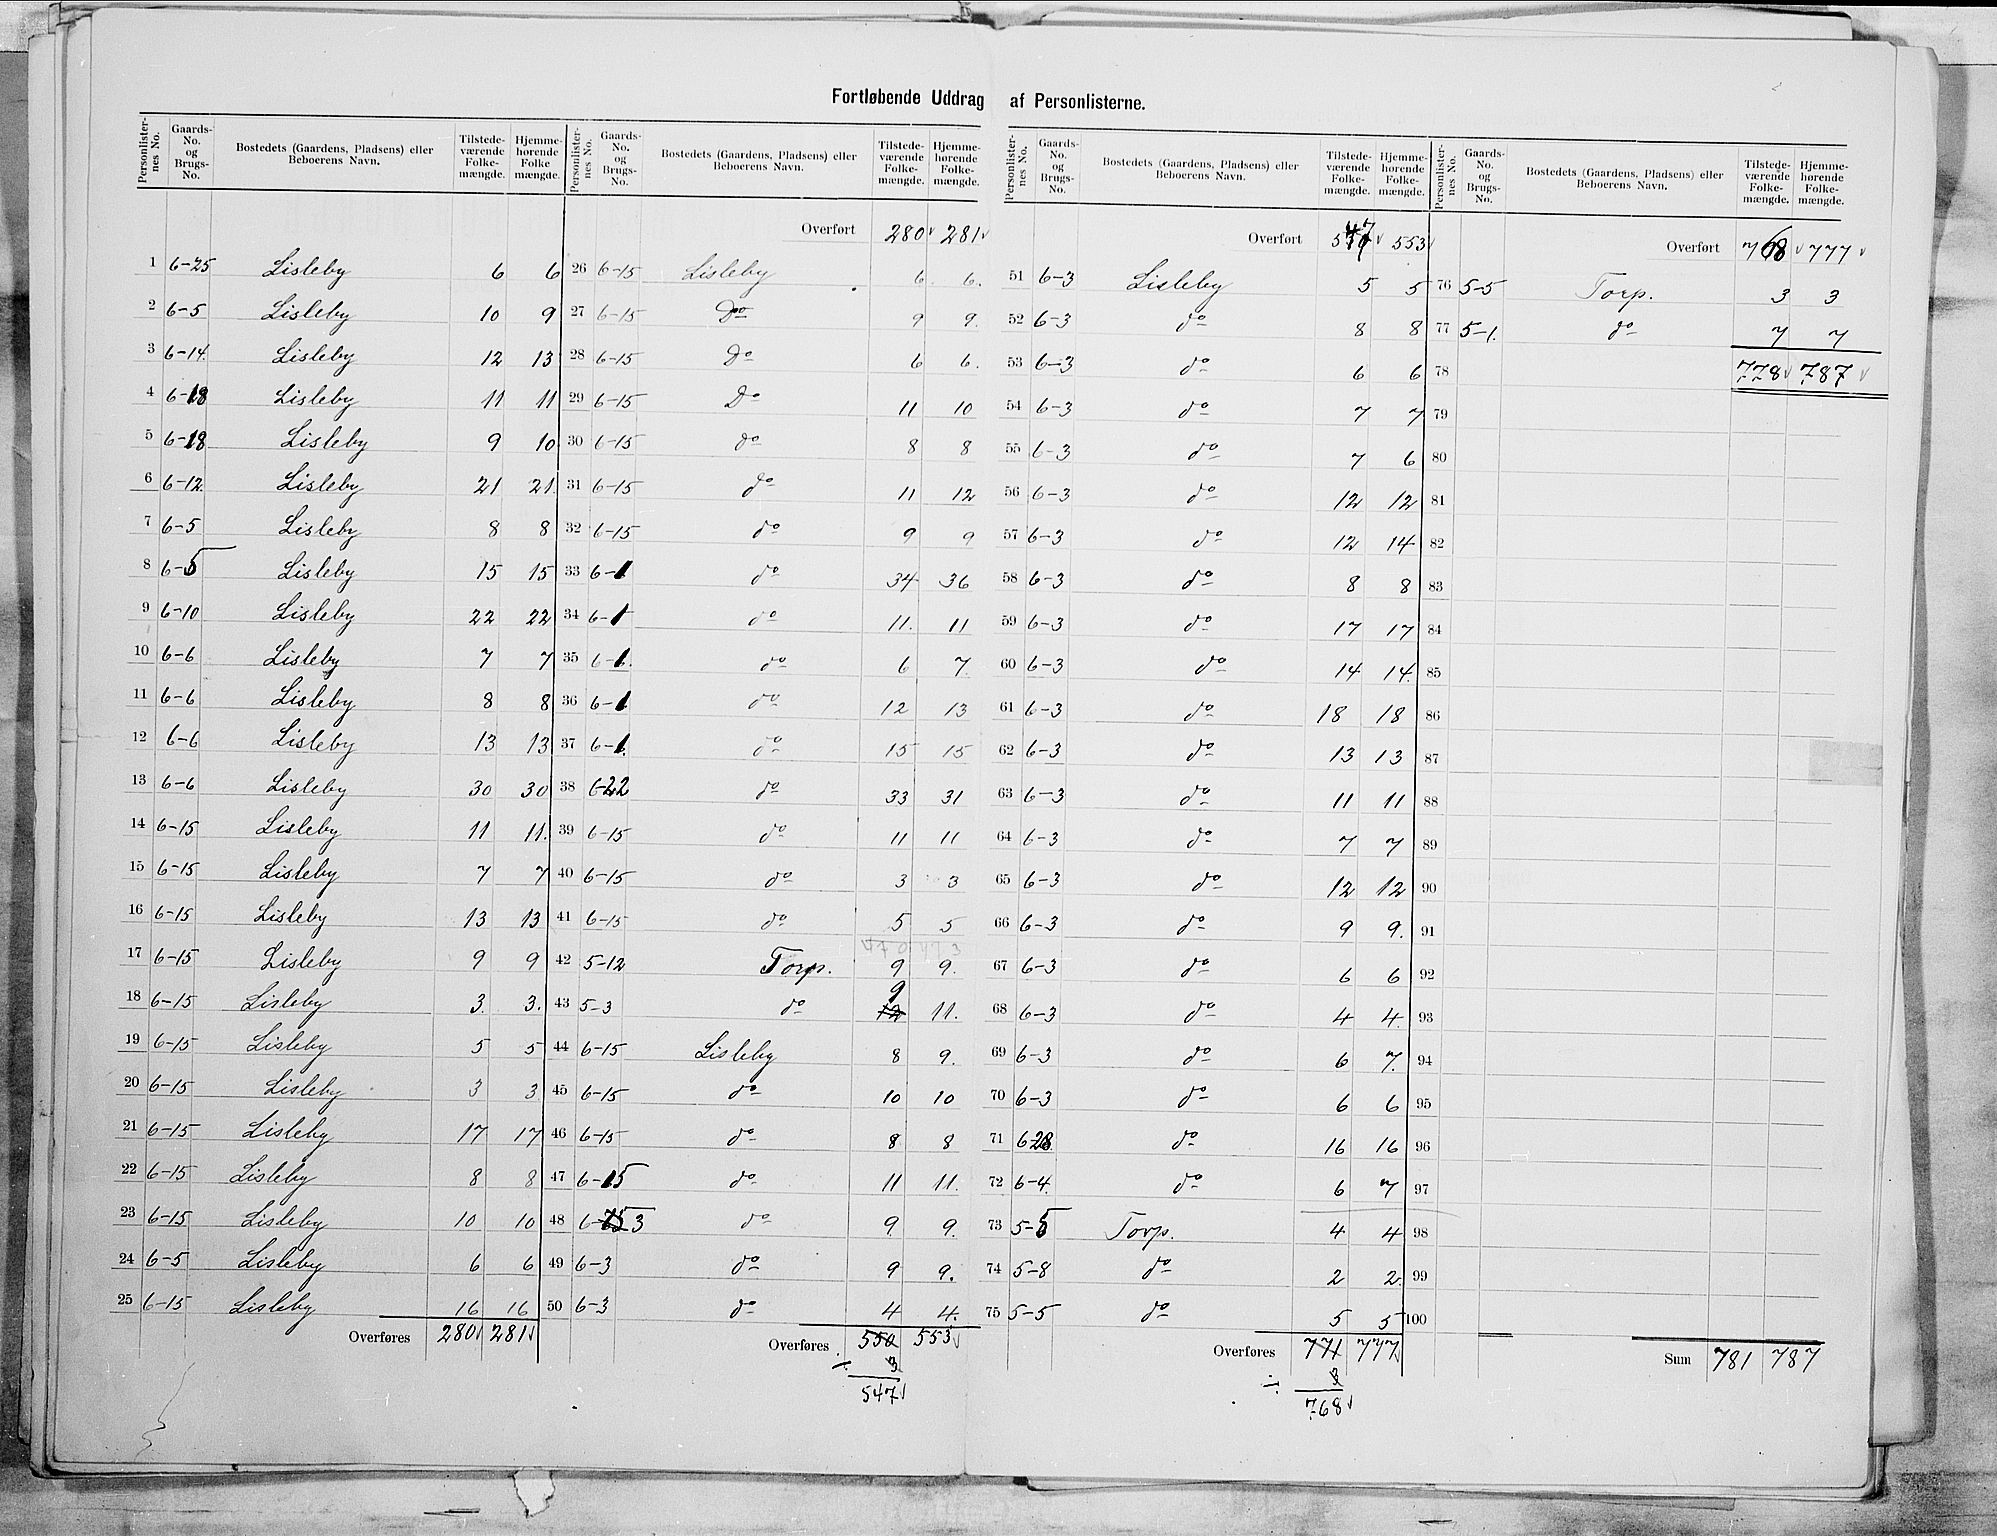 Fortløbende Uddrag af Personlisterne.
Personlister-nes No. Gaards-No. og Brugs-No. Bostedets (Gaardens, Pladsens) eller Beboerens Navn. Tilstede-værende Folke-mængde. Hjemme-hørende Folke mængde.
1 6-25 Lisleby 6 6
2 6-5 Lisleby 10 9
3 6-14. Lisleby 12 13
4 6-18 Lisleby 11 11
5 6-18 Lisleby 9 10
6 6-12. Lisleby 21 21
7 6-5 Lisleby 8 8
8 6-5 Lisleby 15 15
9 6-10 Lisleby 22 22
10 6-6 Lisleby 7 7
11 6-6 Lisleby 8 8
12 6-6 Lisleby 13 13
13 6-6 Lisleby 30 30
14 6-15 Lisleby 11 11.
15 6-15 Lisleby 7 7
16 6-15 Lisleby 13 13
17 6-15 Lisleby 9 9
18 6-15 Lisleby 3. 3.
19 6-15 Lisleby 5 5
20 6-15 Lisleby 3 3
21 6-15 Lisleby 17 17
22 6-15 Lisleby 8 8
23 6-15 Lisleby 10 10
24 6-5 Lisleby 6 6
25 6-15 Lisleby 16 16
Overføres 280 281
Personlister-nes No. Gaards-No. og Brugs-No. Bostedets (Gaardens, Pladsens) eller Beboerens Navn. Tilstede-værende Folke-mængde. Hjemme-hørende Folke-mængde.
Overført 280 281
26 6-15 Lisleby 6. 6.
27 6-15 Do 9 9.
28 6-15 Do 6 6.
29 6-15 Do 11 10
30 6-15 do 8 8
31 6-15 do 11 12
32 6-15 do 9 9
33 6-1 do 34 36
34 6-1 do 11. 11
35 6-1. do 6 7.
36 6-1 do 12 13
37 6-1. do 15 15
38 6-22 do 33 31
39 6-15 do 11 11
40 6-15 do 3 3
41 6-15 do 5 5
42 5-12 Torp. 9 9.
9
43 5-3 do 12 11.
44 6-15 Lisleby 8 9.
45 6-15 do 10 10
46 6-15 do 8 8
47 6-15 do 11 11.
48 6-15 3 do 9. 9.
49 6-3 do 9 9.
50 6-3 do 4 4.
Overføres 550 553
÷ 3
547
Personlister-nes No. Gaards-No. og Brugs-No. Bostedets (Gaardens, Pladsens) eller Beboerens Navn. Tilstede-værende Folke-mængde. Hjemme-hørende Folke-mængde.
Overført 547 553
51 6-3 Lisleby 5 5
52 6-3 do 8 8
53 6-3 do 6 6
54 6-3 do 7 7
55 6-3 do 7 6
56 6-3 do 12 12
57 6-3 do 12 14
58 6-3 do 8 8
59 6-3 do 17 17
60 6-3 do 14 14.
61 6-3 do 18 18
62 6-3 do 13 13
63 6-3 do 11 11
64 6-3 do 7 7
65 6-3 do 12 12
66 6-3 do 9 9.
67 6-3 do 6 6
68 6-3 do 4 4.
69 6-3 do 6 7.
70 6-3 do 6 6
71 6-28. do 16 16
72 6-4. do 6 7
73 5-5 Torp. 4 4
74 5-8 do 2 2.
75 5-5 do 5 5
Overføres 771 777
÷ 3
768
Personlister-nes No. Gaards-No. og Brugs-No. Bostedets (Gaardens, Pladsens) eller Beboerens Navn. Tilstede-værende Folke-mængde. Hjemme-hørende Folke-mængde.
Overført 768 777
76 5-5 Torp. 3 3
77 5-1. do 7 7
78 778 787
79
80
81
82
83
84
85
86
87
88
89
90
91
92
93
94
95
96
97
98
99
100
Sum 781 787